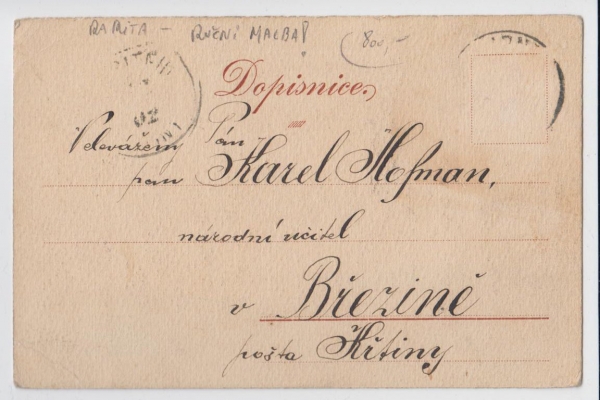 RARITA - RUČNÍ MALBA!
800,-
Dopisnice.
Velevážený Pán
pan Karel Hofman,
národní učitel
v Březině
pošta Křtiny